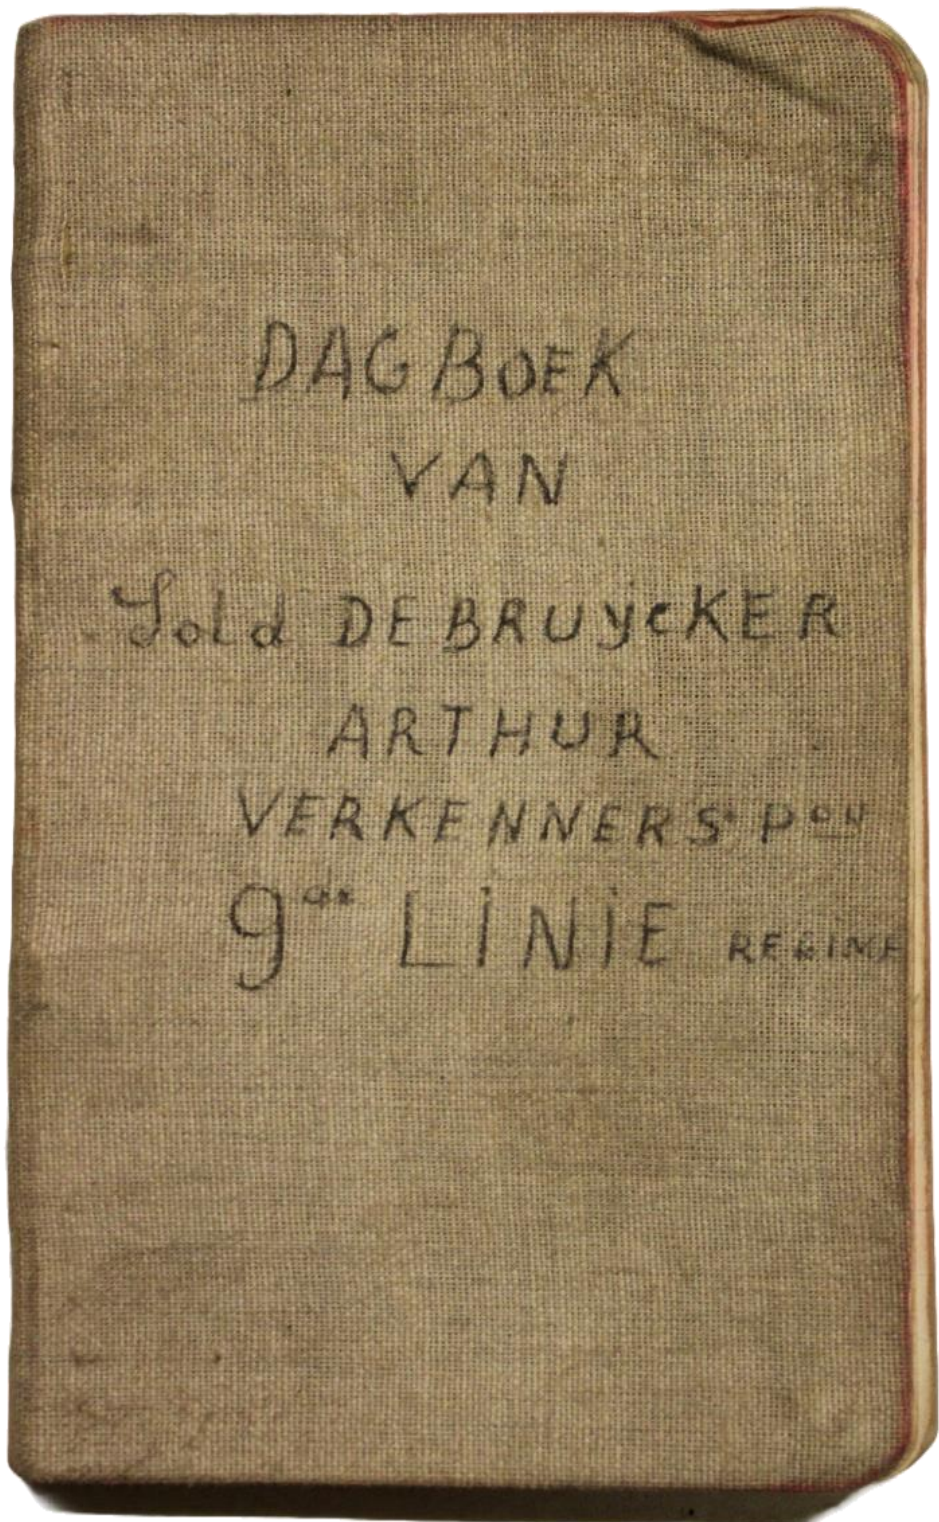 DAGBOEK
VAN
Sold DEBRUYcKER
ARTHUR
VERKENNERS Pon
9de LINIE REGIME